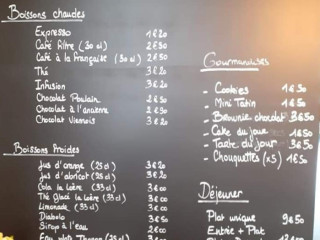 Boissons chaudes
Expresso 1€20
Café filtre (30 cl) 2€50
Café à la française (30 cl) 2€50
Thé 3€20
Infusion 3€20
Chocolat Poulain 2€50
Chocolat à l'ancienne 2€90
Chocolat Viennois 3€20
Boissons froides
Jus d'orange (25 cl) 3€20
Jus d'abricot (25 cl) 3€20
Cola la Loère (33 cl) 3€00
Thé Glacé la Loère (33 cl) 3€00
Limonade (33 cl) 3€00
Diabolo 3€50
Sirop à l'eau 2€00
Gourmandises
- Cookies 1€50
- Mini Tatin 1€50
- Brownie chocolat 3€50
- Cake du jour 1€50
- Tarte du jour 3€50
- Chouquettes (x5) 1€50
Déjeuner
Plat unique 9€50
Entrée + Plat